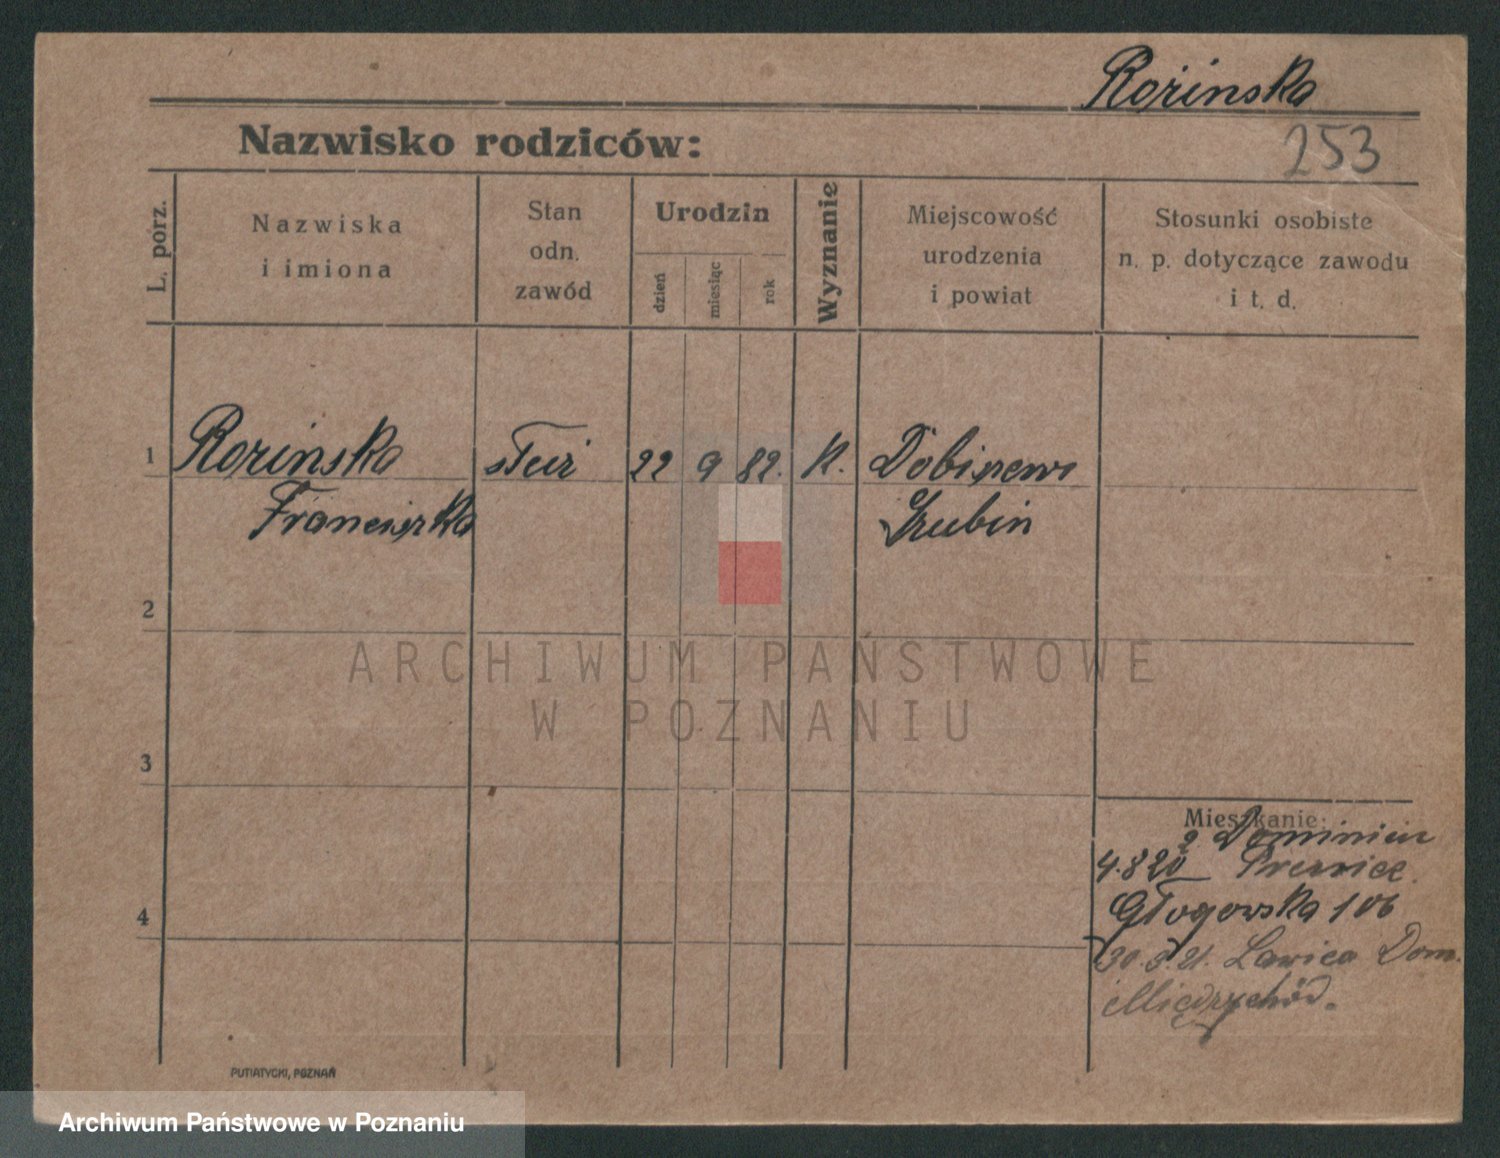 Rozinska
Nazwisko rodziców:
253
L. porz.
Nazwiska
i imiona
Stan
odn.
zawód
Urodzin
dzień
miesiąc
rok
Wyznanie
Miejscowość
urodzenia
i powiat
Stosunki osobiste
n. p. dotyczące zawodu
i t. d.
1
Rozinska
Franciszka
służ
22
9
82.
K.
Szubin
2
3
4
Mieszkanie:
z Dominium
4.8.20
Głogowska 106
30.3.21. Ławica Dom.
Międzychód.
PUTIATYCKI, POZNAŃ
ARCHIWUM PAŃSTWOWE
W POZNANIU
Archiwum Państwowe w Poznaniu